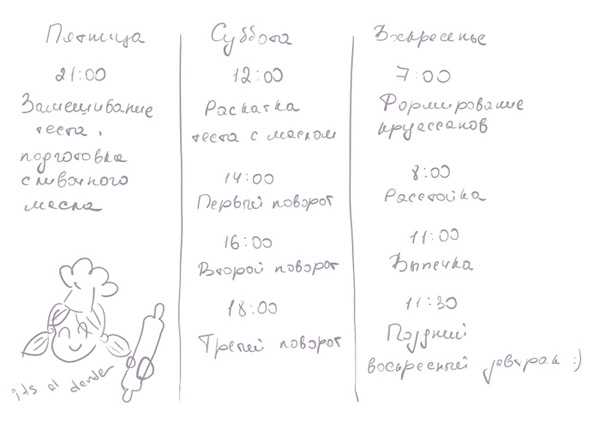 Пятница
21:00
Замешивание
теста,
подготовка
сливочного
масла
its al dender
Суббота
12:00
Раскатка
теста с маслом
14:00
Первый поворот
16:00
Второй поворот
18:00
Третий поворот
Воскресенье
7:00
Формирование
круассанов
8:00
Расстойка
11:00
Выпечка
11:30
Поздний
воскресный завтрак :)